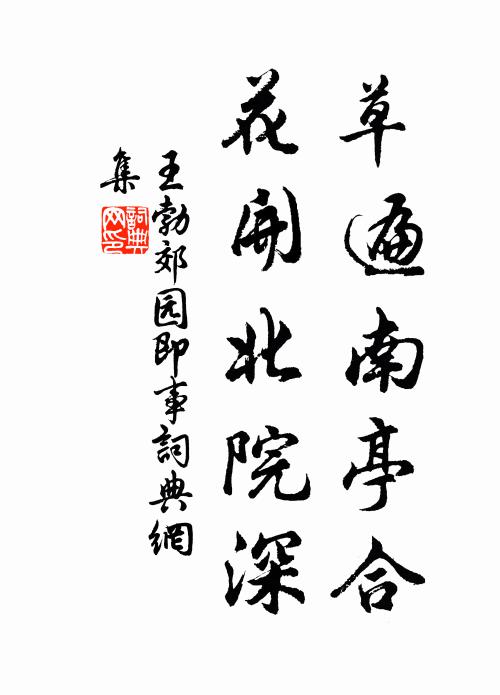 草遍南亭合
花開北院深
王勃郊园即事詞典網
集
詞典
网印